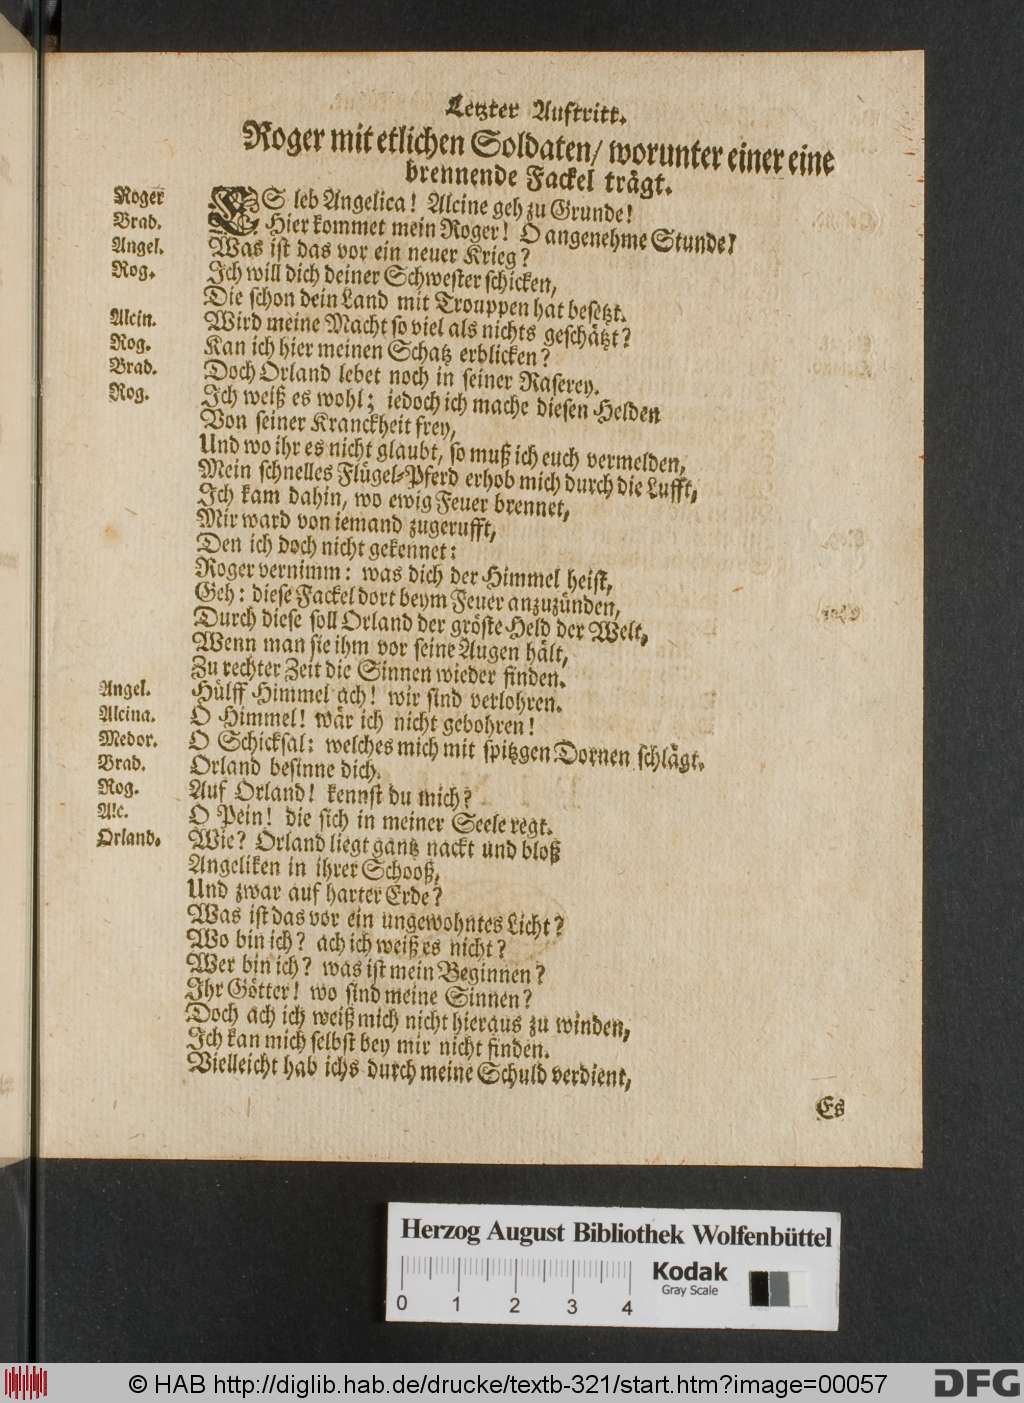 Letzter Auftritt.
Roger mit etlichen Soldaten/ worunter einer eine
brennende Fackel trägt.
Roger ES leb Angelica! Alcine geh zu Grunde!
Brad. Hier kommet mein Roger! O angenehme Stunde!
Angel. Was ist das vor ein neuer Krieg?
Rog. Ich will dich deiner Schwester schicken,
Die schon dein Land mit Trouppen hat besetzt.
Alcin. Wird meine Macht so viel als nichts geschätzt?
Rog. Kan ich hier meinen Schatz erblicken?
Brad. Doch Orland lebet noch in seiner Raserey.
Rog. Ich weiß es wohl; iedoch ich mache diesen Helden
Von seiner Kranckheit frey,
Und wo ihr es nicht glaubt, so muß ich euch vermelden,
Mein schnelles Flügel-Pferd erhob mich durch die Lufft,
Ich kam dahin, wo ewig Feuer brennet,
Mir ward von iemand zugerufft,
Den ich doch nicht gekennet:
Roger vernimm: was dich der Himmel heist,
Geh: diese Fackel dort beym Feuer anzuzünden,
Durch diese soll Orland der gröste Held der Welt,
Wenn man sie ihm vor seine Augen hält,
Zu rechter Zeit die Sinnen wieder finden.
Angel. Hülff Himmel ach! wir sind verlohren.
Alcina. O Himmel! wär ich nicht gebohren!
Medor. O Schicksal: welches mich mit spitzgen Dornen schlägt.
Brad. Orland besinne dich.
Rog. Auf Orland! kennst du mich?
Alc. O Pein! die sich in meiner Seele regt.
Orland. Wie? Orland liegt gantz nackt und bloß
Angeliken in ihrer Schooß,
Und zwar auf harter Erde?
Was ist das vor ein ungewohntes Licht?
Wo bin ich? ach ich weiß es nicht?
Wer bin ich? was ist mein Beginnen?
Ihr Götter! wo sind meine Sinnen?
Doch ach ich weiß mich nicht hieraus zu winden,
Ich kan mich selbst bey mir nicht finden.
Vielleicht hab ichs durch meine Schuld verdient,
Es
Herzog August Bibliothek Wolfenbüttel
0 1 2 3 4
Kodak
Gray Scale
© HAB http://diglib.hab.de/drucke/textb-321/start.htm?image=00057
DFG